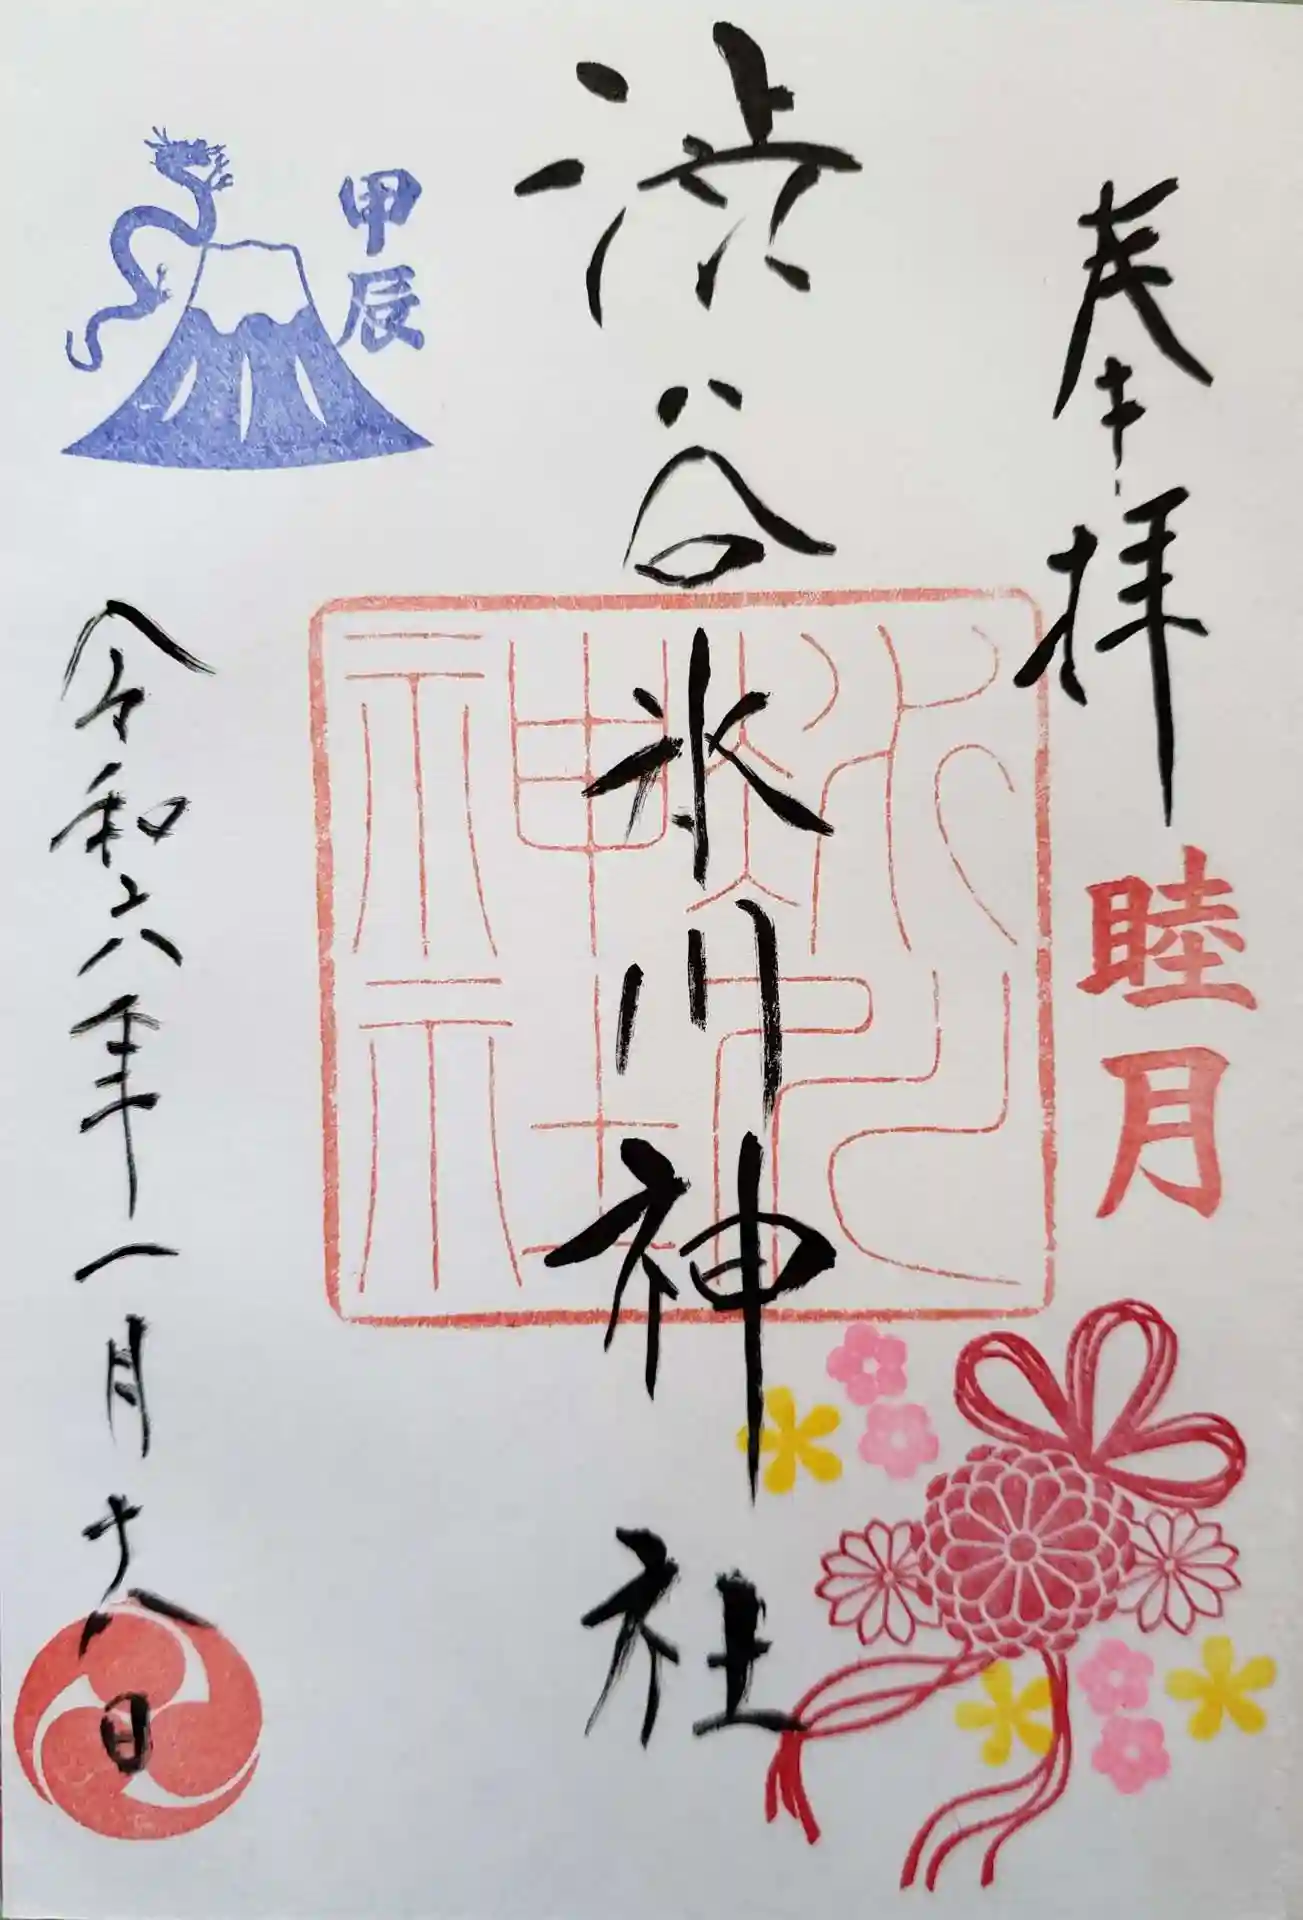 奉拝
睦月
渋谷氷川神社
氷川神社
甲辰
令和六年一月十八日